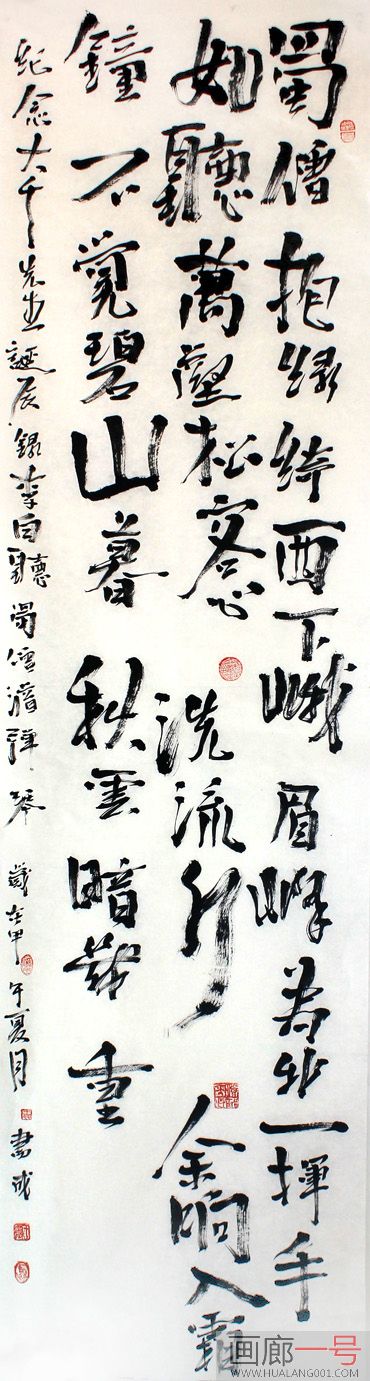 蜀僧抱綠綺西下峨眉峰為我一揮手
如聽萬壑松客心洗流水余响入霜
鐘不覺碧山暮秋雲暗幾重
紀念大千先生誕辰錄李白聽蜀僧濬彈琴歲在甲午夏月書
画廊一号
WWW.HUALANG001.COM